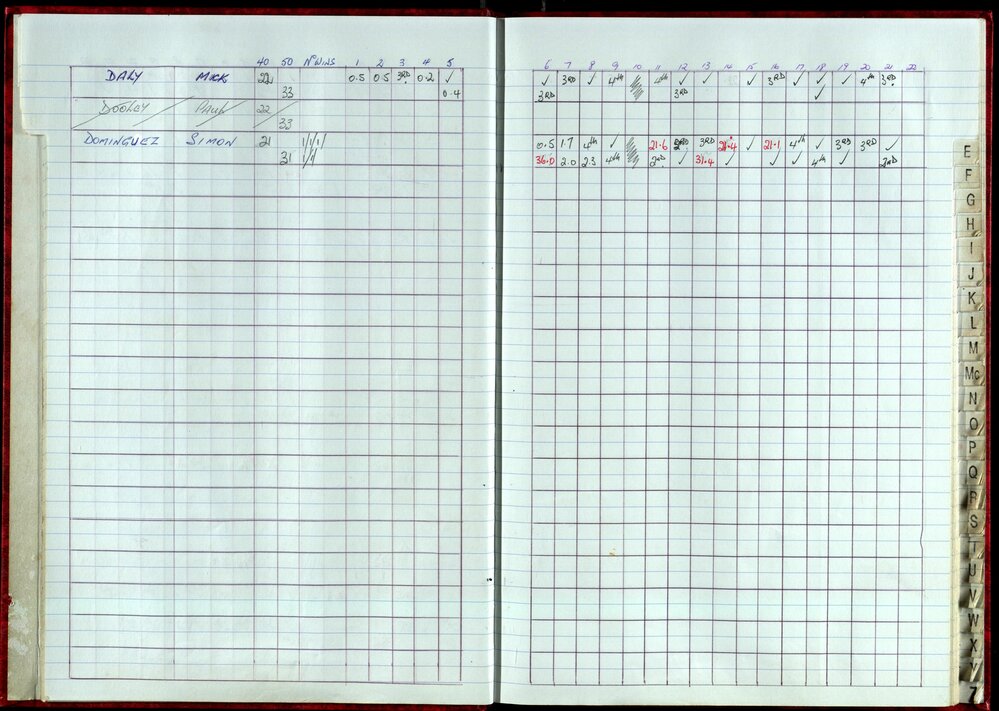 40 50 Nº WINS 1 2 3 4 5 6 7 8 9 10 11 12 13 14 15 16 17 18 19 20 21 22
DALY MICK 22 0.5 0.5 3RD 0.2 ✓ ✓ 3RD ✓ 4th 4th ✓ ✓ ✓ 3RD ✓ ✓ ✓ 4th 3RD
33 0.4 3RD 3RD ✓
DOOLEY PAUL 22
33
DOMINGUEZ SIMON 21 0.5 1.7 4th ✓ 21.6 2ND 3RD 21.4 ✓ 21.1 4th ✓ 3RD 3RD ✓
31 36.0 2.0 2.3 4th 2ND ✓ 31.4 ✓ ✓ ✓ ✓ 4th ✓ 2ND
E
F
G
H
I
J
K
L
M
Mc
N
O
P
Q
R
S
T
U
V
W
X
Y
Z